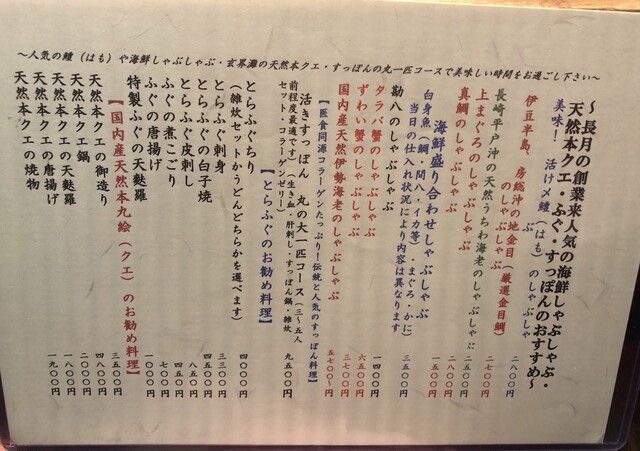 ～人気の鱧（はも）や海鮮しゃぶしゃぶ・玄界灘の天然本クエ・すっぽんの丸一匹コースで美味しい時間をお過ごし下さい～
～長月の創業来人気の海鮮しゃぶしゃぶ・
天然本クエ・ふぐ・すっぽんのおすすめ～
美味！ 活け〆鱧（はも）のしゃぶしゃぶ
二八〇〇円
伊豆半島、房総沖の地金目（厳選金目鯛）のしゃぶしゃぶ
二七〇〇円
長崎平戸沖の天然うちわ海老のしゃぶしゃぶ
二五〇〇円
上まぐろのしゃぶしゃぶ
二八〇〇円
真鯛のしゃぶしゃぶ
一五〇〇円
海鮮盛り合わせしゃぶしゃぶ
白身魚（鯛・間八・イカ等）・まぐろ・かに）
当日の仕入れ状況により内容は異なります
三五〇〇円
勘八のしゃぶしゃぶ
一四〇〇円
タラバ蟹のしゃぶしゃぶ
六五〇〇円
ずわい蟹のしゃぶしゃぶ
三七〇〇円
国内産天然伊勢海老のしゃぶしゃぶ
五七〇〇～円
【医食同源コラーゲンたっぷり！伝統と人気のすっぽん料理】
活きすっぽん 丸の大一匹コース（三～五人
前程度最適です）（生き血・肝刺し・すっぽん鍋・雑炊
セット・コラーゲンゼリー）
九五〇〇円
【とらふぐのお勧め料理】
とらふぐちり
（雑炊セットかうどんどちらかを選べます）
四〇〇〇円
とらふぐ刺身
三三〇〇円
とらふぐの白子焼
四五〇〇円
とらふぐ皮刺し
八五〇円
ふぐの煮こごり
四五〇円
ふぐの唐揚げ
七〇〇円
特製ふぐの天麩羅
一〇〇〇円
【国内産天然本九絵（クエ）のお勧め料理】
天然本クエの御造り
三五〇〇円
天然本クエ鍋
四八〇〇円
天然本クエの天麩羅
一八〇〇円
天然本クエの唐揚げ
一八〇〇円
天然本クエの焼物
一九〇〇円